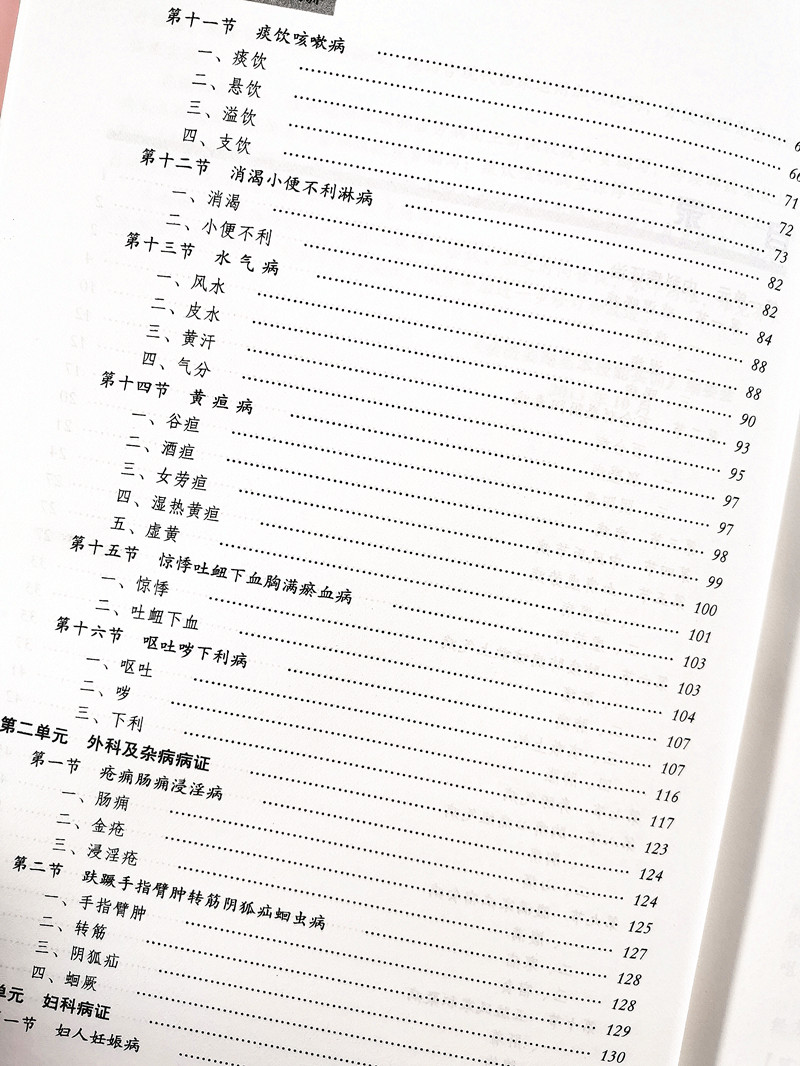 第十一节 痰饮咳嗽病
一、痰饮 66
二、悬饮 71
三、溢饮 72
四、支饮 73
第十二节 消渴小便不利淋病 82
一、消渴 82
二、小便不利 84
第十三节 水气病 88
一、风水 88
二、皮水 90
三、黄汗 93
四、气分 95
第十四节 黄疸病 97
一、谷疸 97
二、酒疸 98
三、女劳疸 99
四、湿热黄疸 100
五、虚黄 101
第十五节 惊悸吐衄下血胸满瘀血病 103
一、惊悸 103
二、吐衄下血 104
第十六节 呕吐哕下利病 107
一、呕吐 107
二、哕 116
三、下利 117
第二单元 外科及杂病病证 123
第一节 疮痈肠痈浸淫病 124
一、肠痈 124
二、金疮 125
三、浸淫疮 127
第二节 趺蹶手指臂肿转筋阴狐疝蛔虫病 128
一、手指臂肿 128
二、转筋 129
三、阴狐疝 130
四、蛔厥
单元 妇科病证
一节 妇人妊娠病